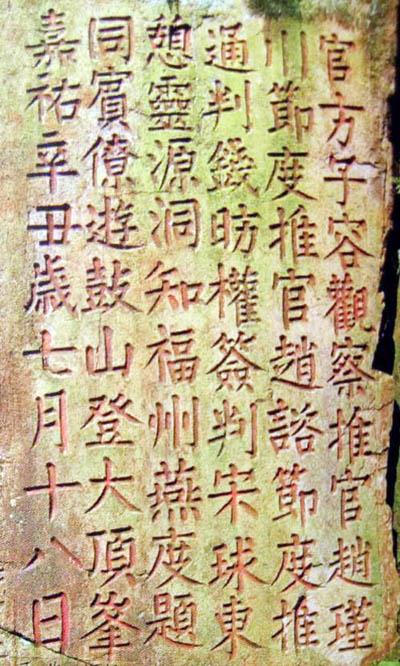 嘉祐辛丑歲七月十八日
同賓僚遊鼓山登大頂峯
憩靈源洞知福州燕度題
通判錢昉權簽判宋球東
川節度推官趙諮節度推
官方子容觀察推官趙瑾